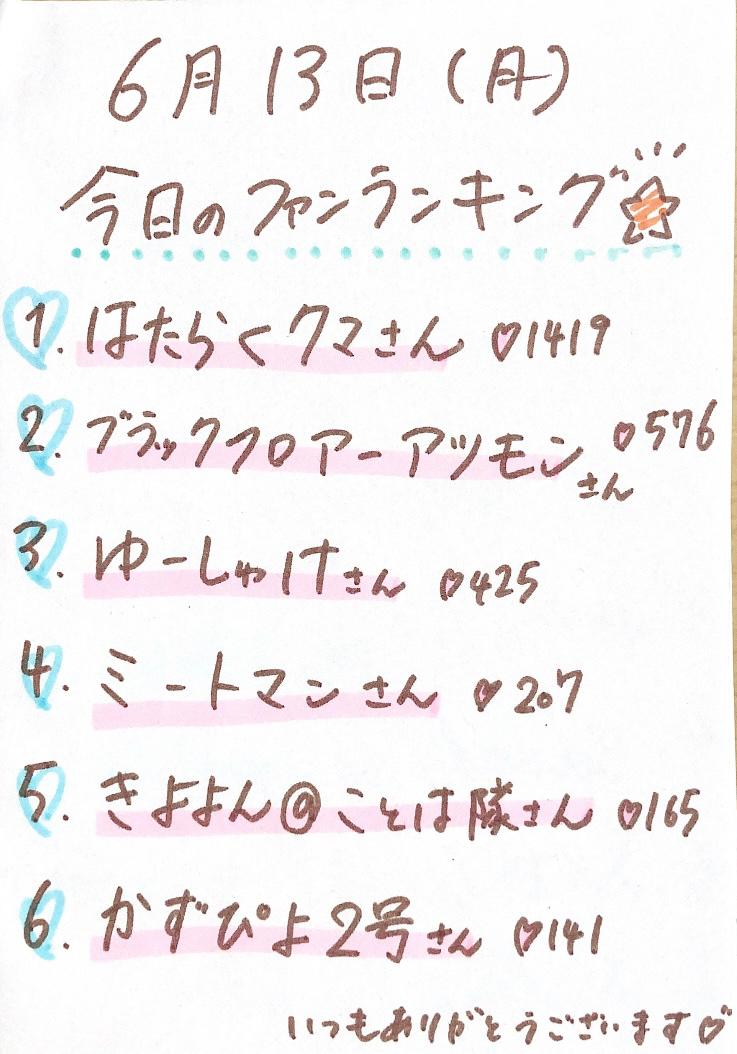 6月13日(月)
今日のファンランキング
1. はたらくクマさん ♡1419
2. ブラックフロアーアツモンさん ♡576
3. ゆーしゃけさん ♡425
4. ミートマンさん ♡207
5. きよよん@ことは隊さん ♡165
6. かずぴよ2号さん ♡141
いつもありがとうございます♡